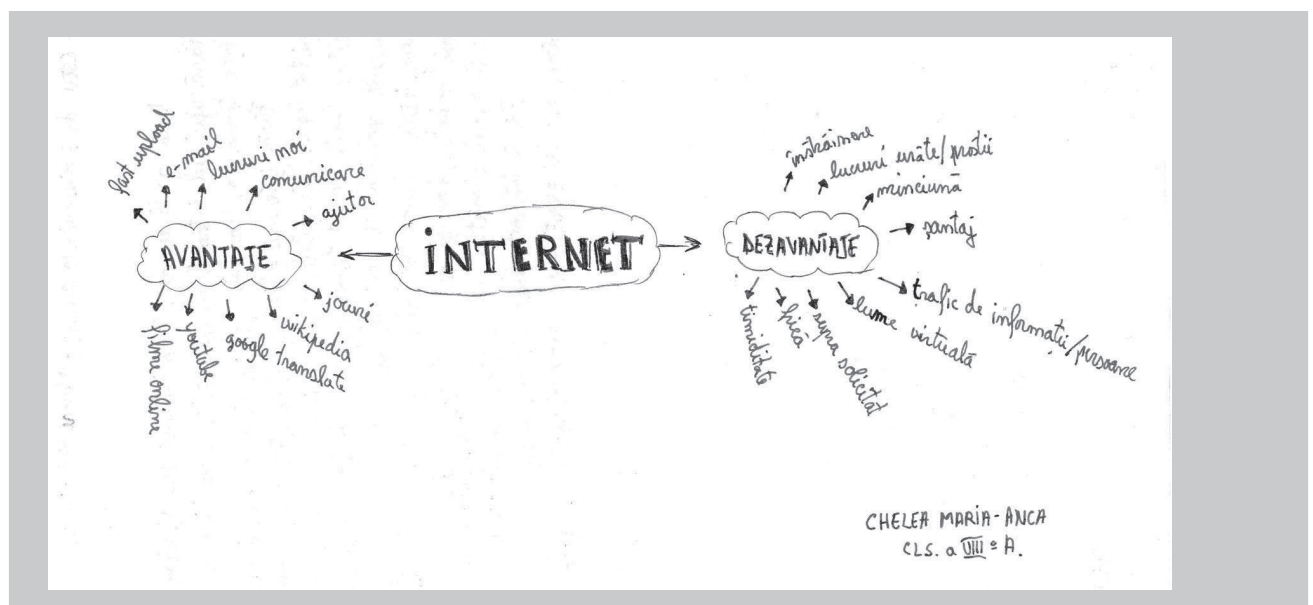 INTERNET
AVANTAJE
fast upload
e-mail
lucruri noi
comunicare
ajutor
jocuri
wikipedia
google translate
youtube
filme online
DEZAVANTAJE
înstrăinare
lucruri urâte/prostii
minciună
șantaj
trafic de informații/persoane
lume virtuală
supra solicitat
frică
timiditate
CHELEA MARIA-ANCA
CLS. a VIII a A.